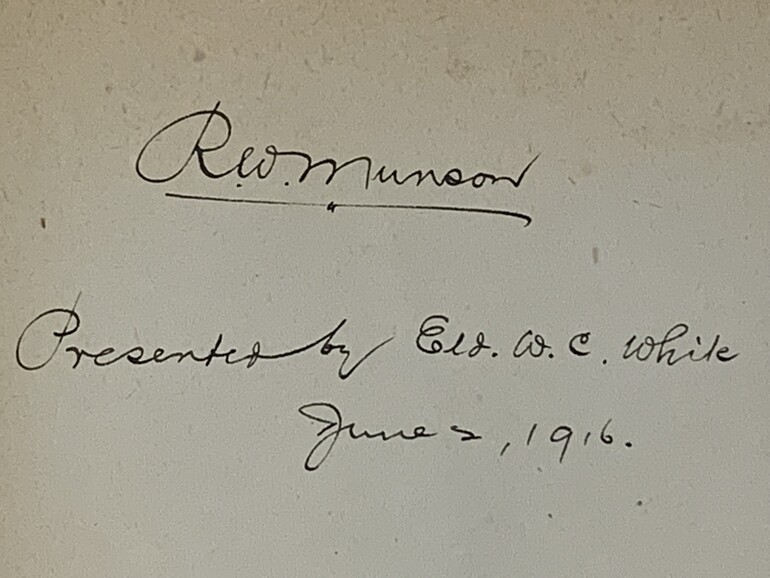 R.W. Munson
Presented by Eld. W. C. White
June 2, 1916.